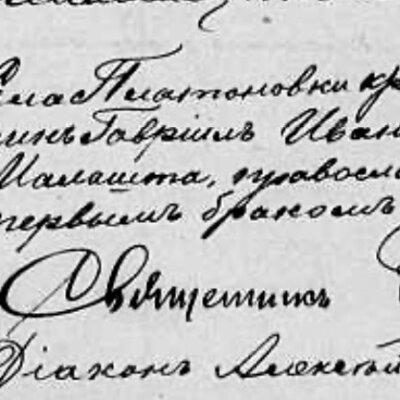 Села Платоновки кр
нинъ Гавріилъ Иван
Малашта, правосла
первымъ бракомъ
Священникъ
Діаконъ Алексѣй